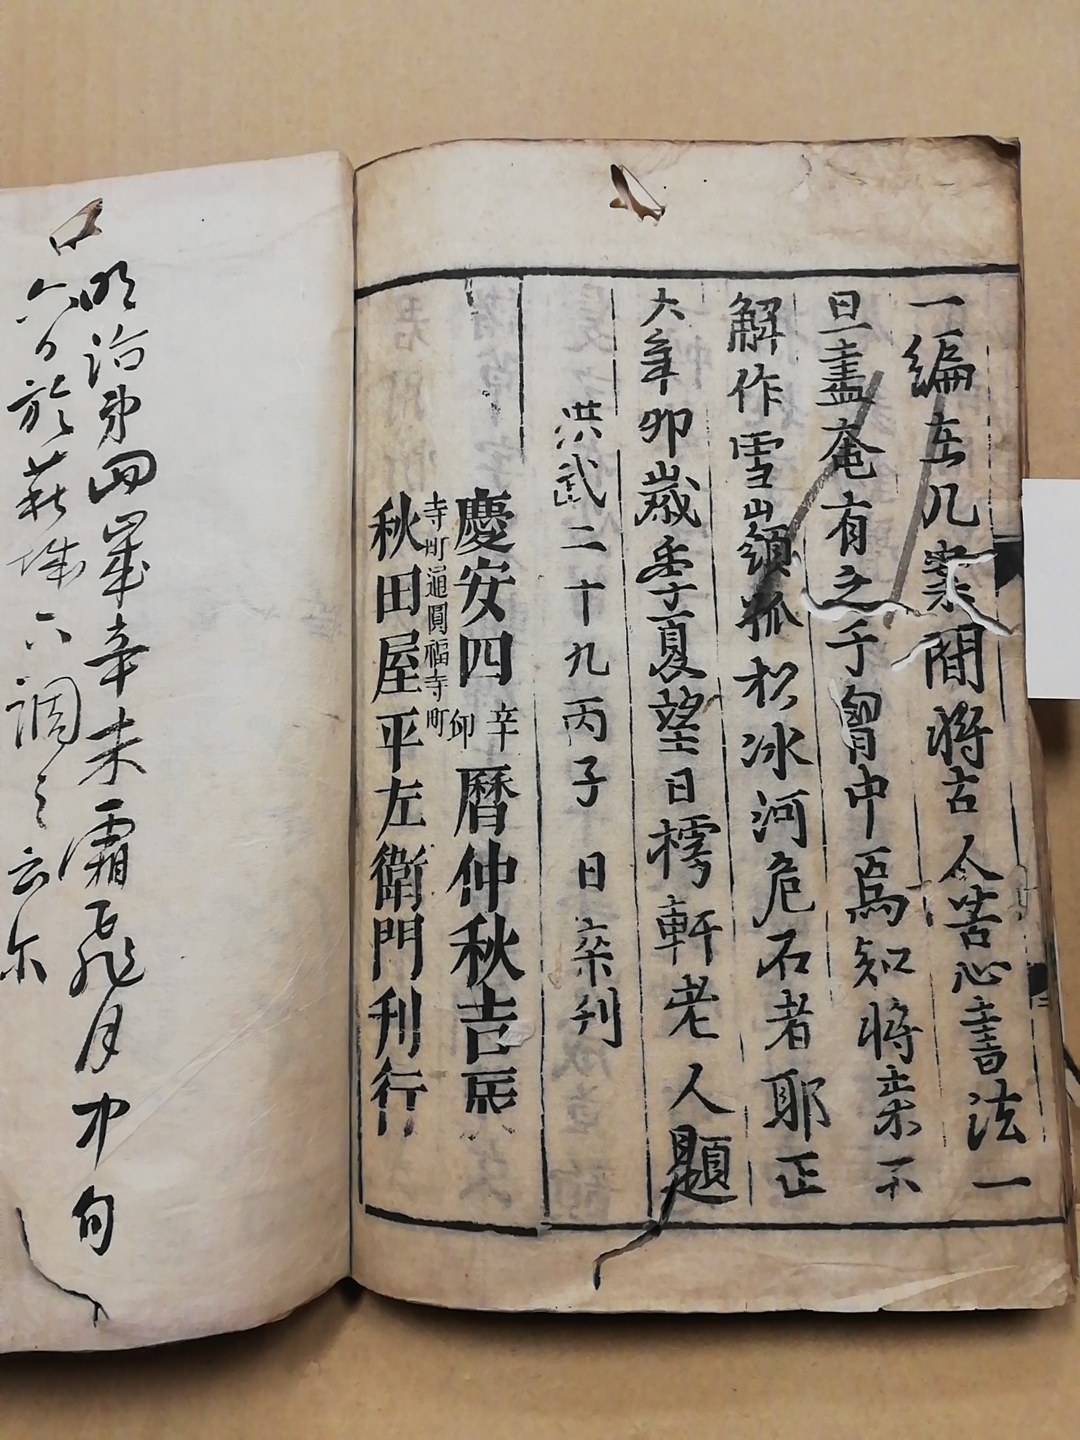 一編在几案間將古人苦心書法一
旦盡奄有之于胷中焉知將來不
解作雪山嶺孤松冰河危石者耶正
大辛卯歲季夏望日樗軒老人題
洪武二十九丙子日來刊
慶安四辛卯曆仲秋吉辰
寺町通圓福寺町
秋田屋平左衛門刊行
明治第四崋辛未霜飛月中旬
六日於萩城下調之云尔